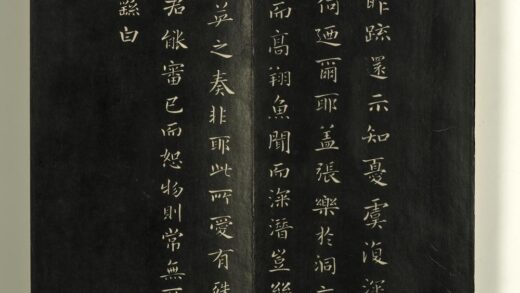 昨疏還示知憂虞復深
何迺爾耶蓋張樂於洞
而高翔魚聞而深潛豈絲
英之奏非耶此所愛有殊
君能審己而恕物則常無
繇白